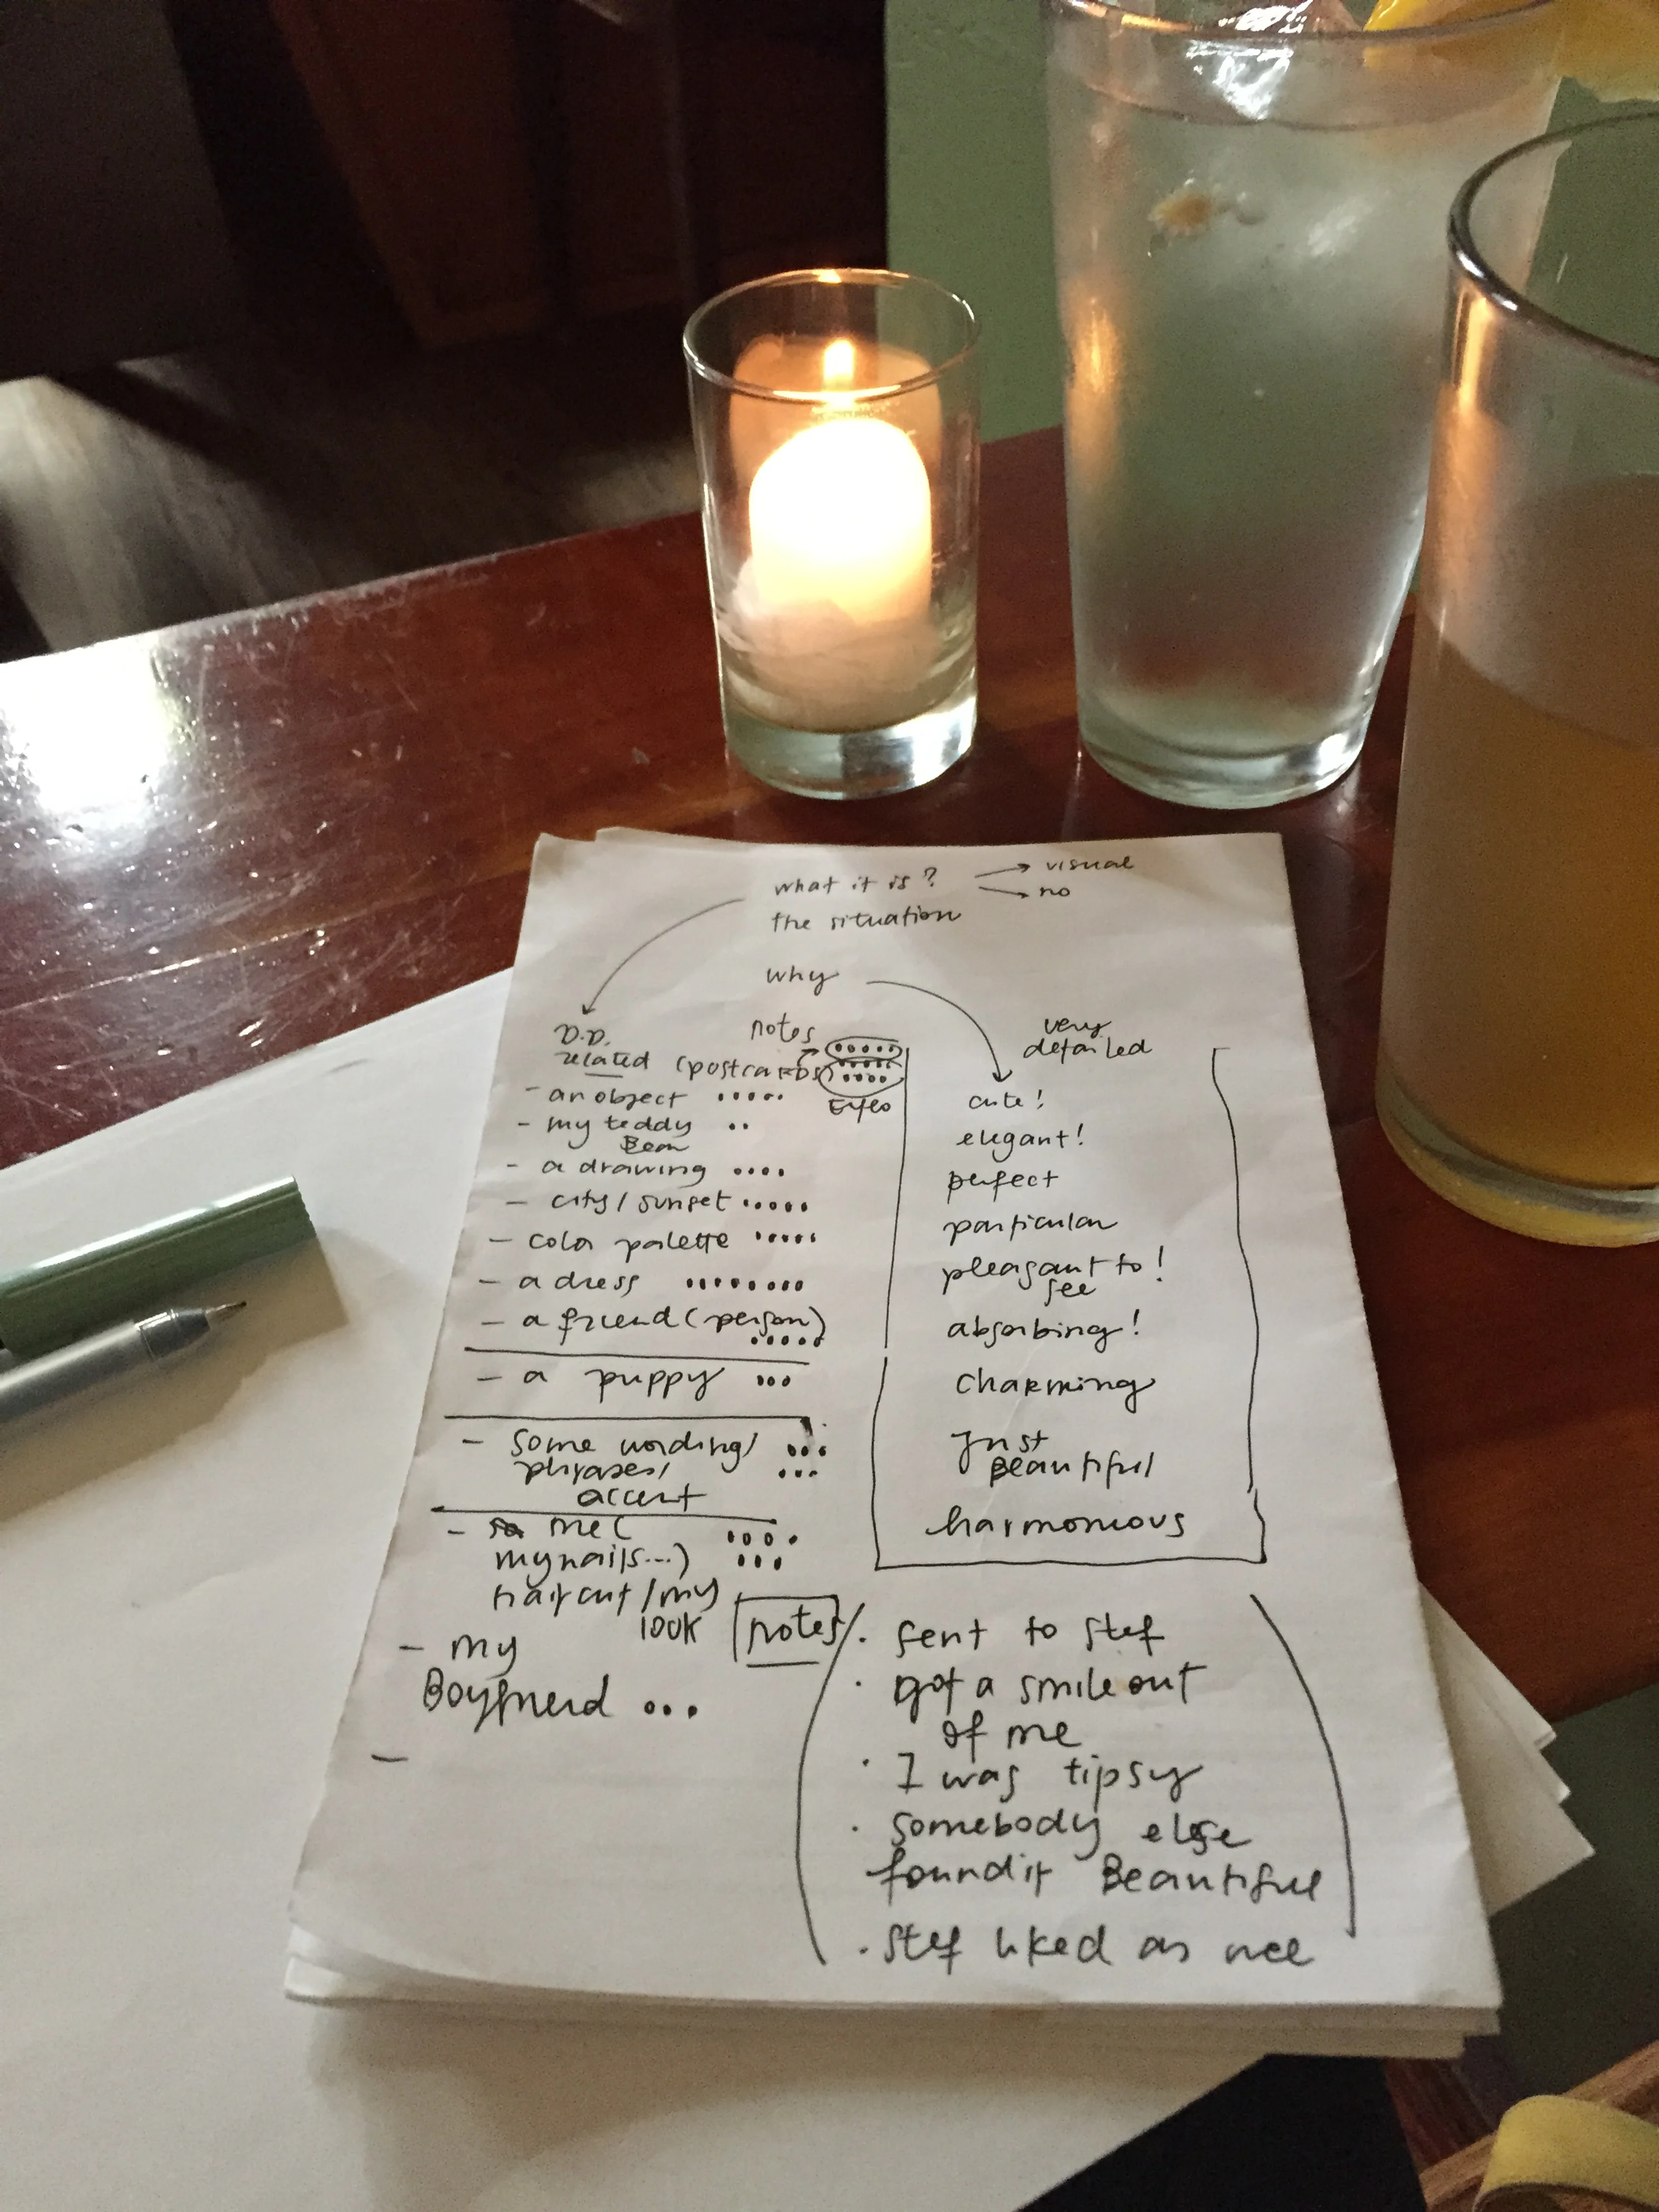 what it is? → visual
→ no
the situation
why
D.D. notes
related (postcards)
- an object .....
- my teddy ..
Bear
- a drawing ....
- city / sunset .....
- color palette .....
- a dress ........
- a friend (person)
.....
- a puppy ...
- some wording/ ...
phrases/ ...
accent
- me ( ....
my nails...) ...
haircut / my
look
- my
Boyfriend ...
-
very
detailed
cute!
elegant!
perfect
particular
pleasant to!
see
absorbing!
charming
Just
Beautiful
harmonious
notes
· sent to stef
· got a smile out
of me
· I was tipsy
· somebody else
found it Beautiful
· stef liked as well